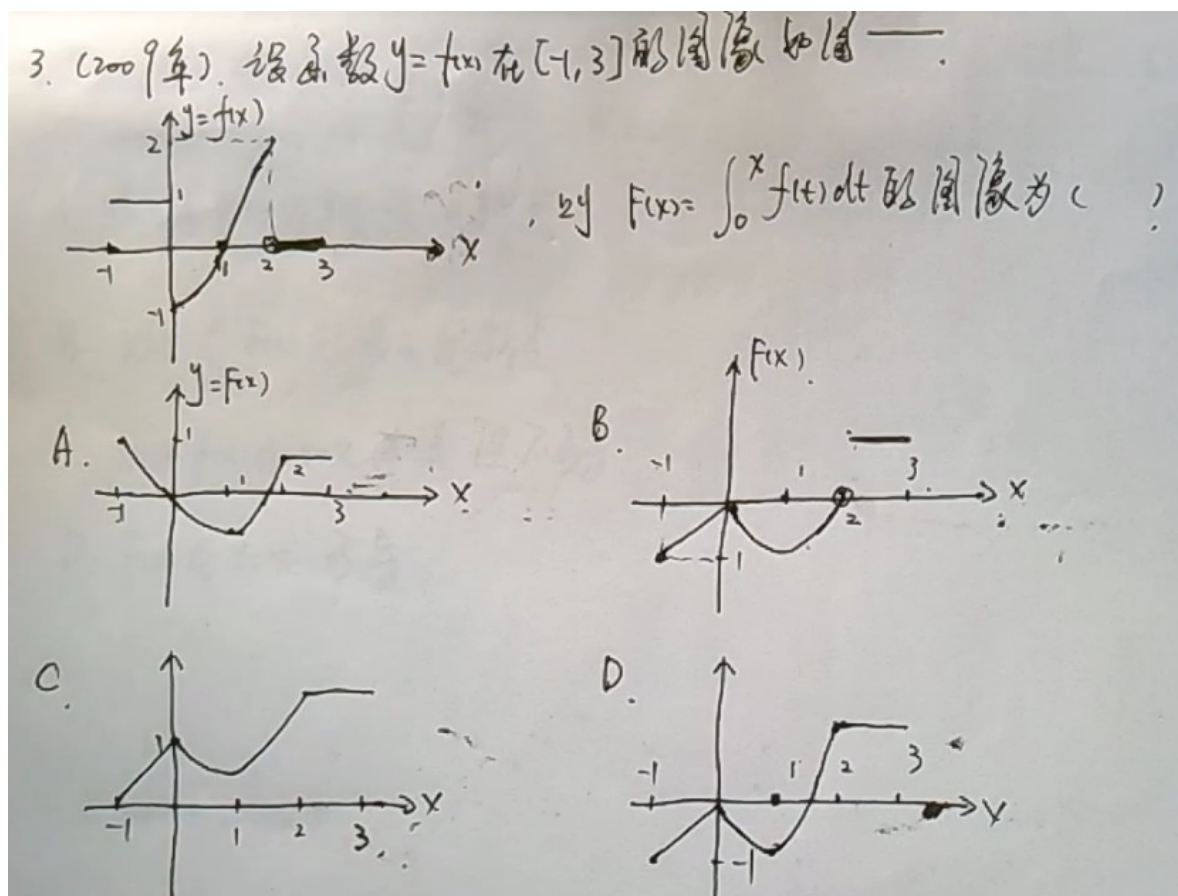 3. (2009年). 设函数y=f(x)在[-1,3]的图像如图——.
y=f(x)
2
1
-1 1 2 3 X
-1
, 则 F(x)=∫₀ˣ f(t)dt的图像为( )?
A.
y=F(x)
1
-1 1 2 3 X
B.
F(x)
-1 1 2 3 X
-1
C.
1
-1 1 2 3 X
D.
-1 1 2 3 X
-1